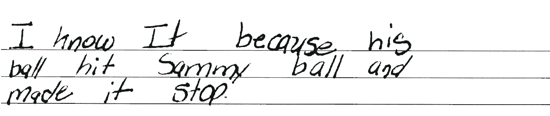 I know It because his
ball hit Sammy ball and
made it stop.